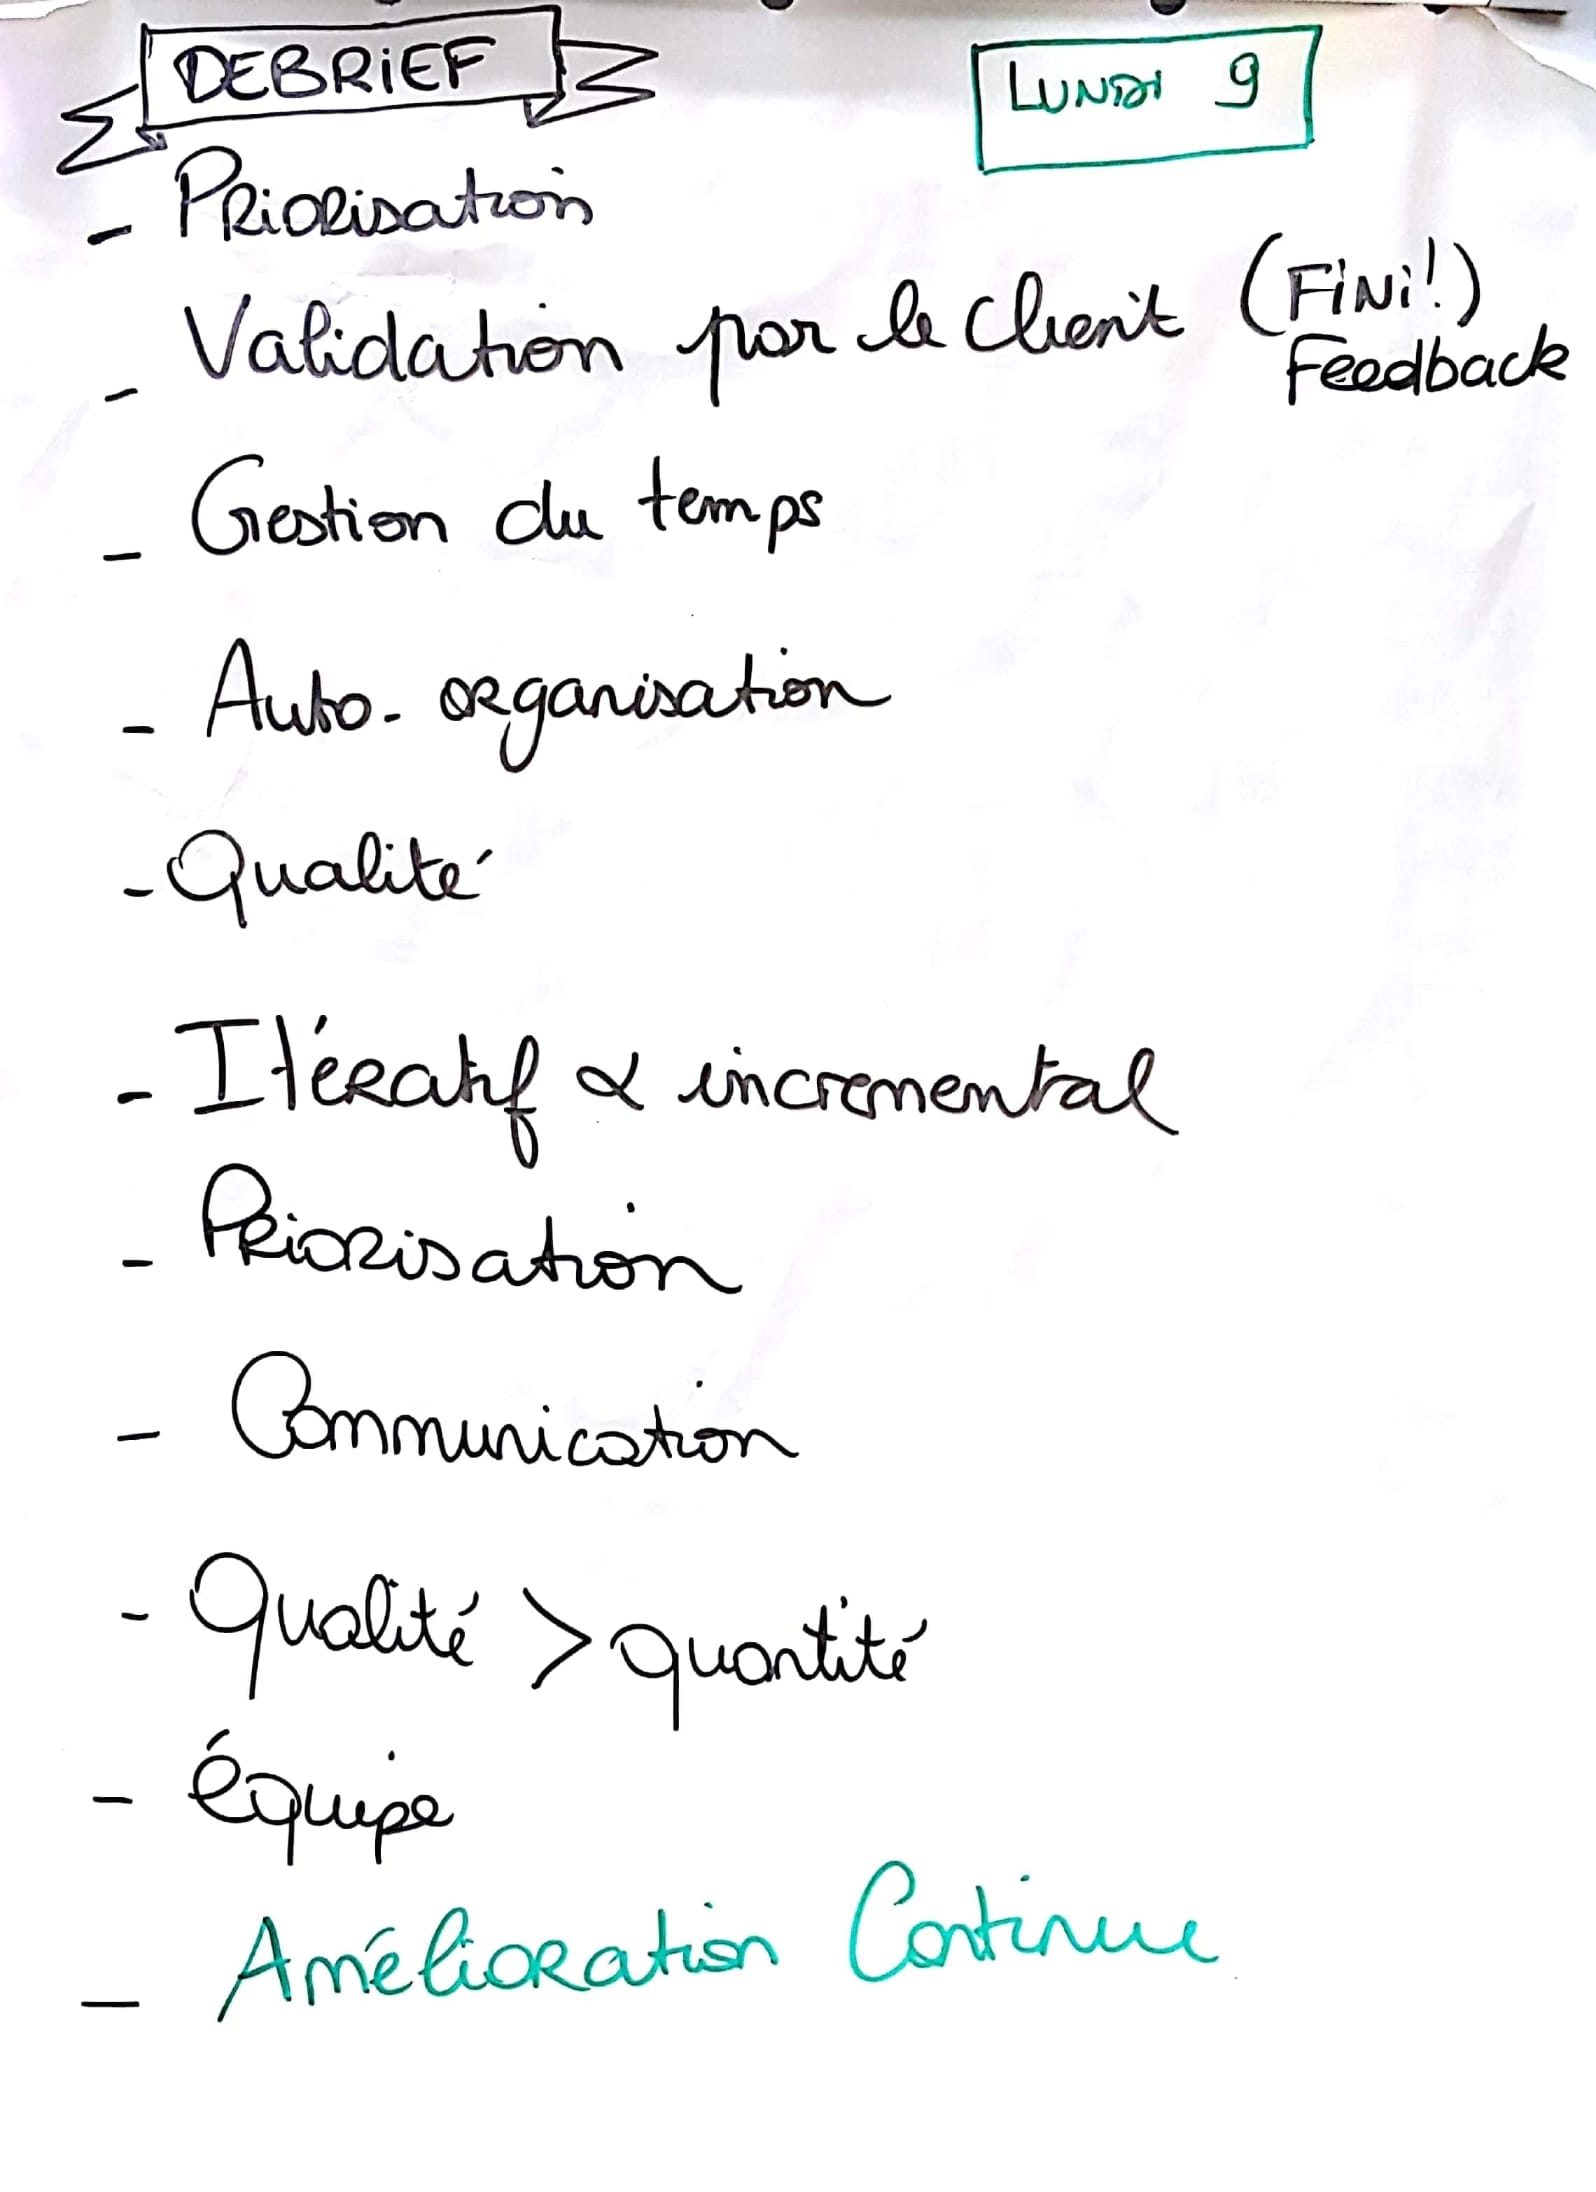 DEBRiEF
LUNDI 9
- PRiORisation
- Validation par le client (FiNi!)
Feedback
- Gestion du temps
- Auto-organisation
- Qualité
- Itératif & incremental
- PRiORisation
- Communication
- Qualité > quantité
- équipe
- Amélioration Continue